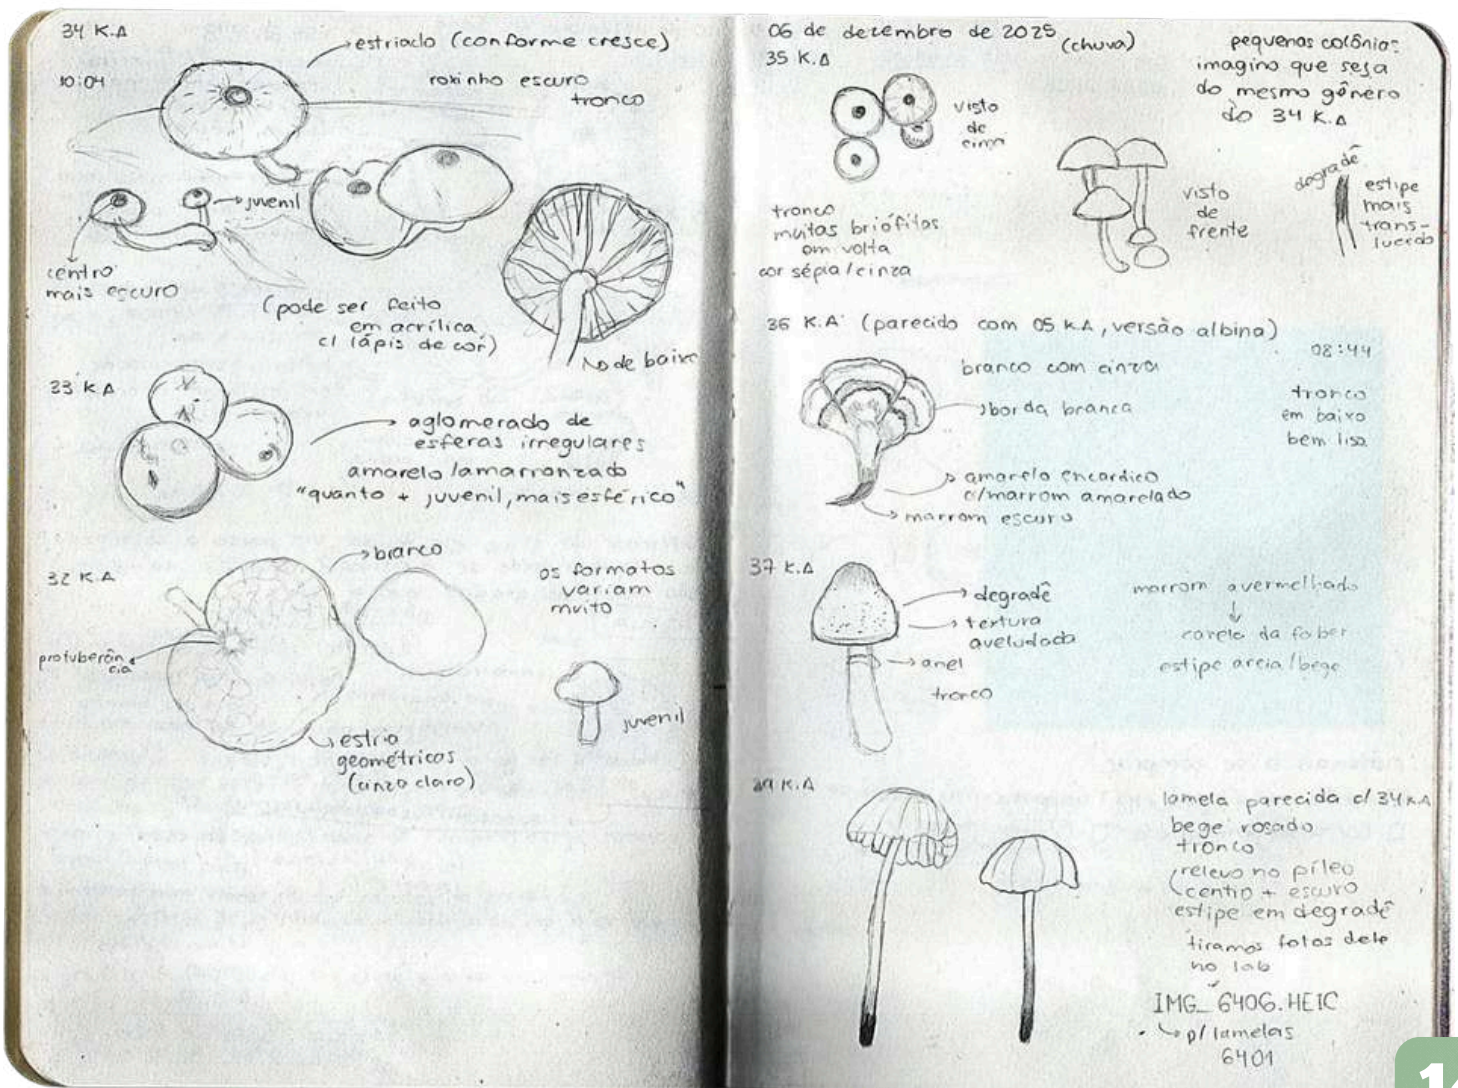 34 K.A
10:04
estriado (conforme cresce)
roxinho escuro
tronco
juvenil
centro
mais escuro
(pode ser feito
em acrílica
c/ lápis de cor)
de baixo
33 K.A
aglomerado de
esferas irregulares
amarelo/amarronzado
"quanto + juvenil, mais esférico"
32 K.A
branco
os formatos
variam
muito
protuberân
cia
juvenil
estria
geométricos
(cinza claro)
06 de dezembro de 2025
(chuva)
35 K.A
visto
de
cima
pequenas colônias
imagino que seja
do mesmo gênero
do 34 K.A
tronco
muitas briófitas
em volta
cor sépia/cinza
visto
de
frente
degradê
estipe
mais
trans-
lucedo
36 K.A (parecido com 05 K.A, versão albina)
08:44
branco com cinza
borda branca
tronco
em baixo
bem lisa
amarelo encardico
c/marrom amarelado
marrom escuro
37 K.A
degradê
textura
aveludada
anel
tronco
marrom avermelhado
da faber
estipe areia/bege
K.A
lamela parecida c/ 34 K.A
bege rosado
tronco
relevo no píleo
centro + escuro
estipe em degradê
tiramos fotos dele
no lab
IMG_6406.HEIC
p/ lamelas
6401